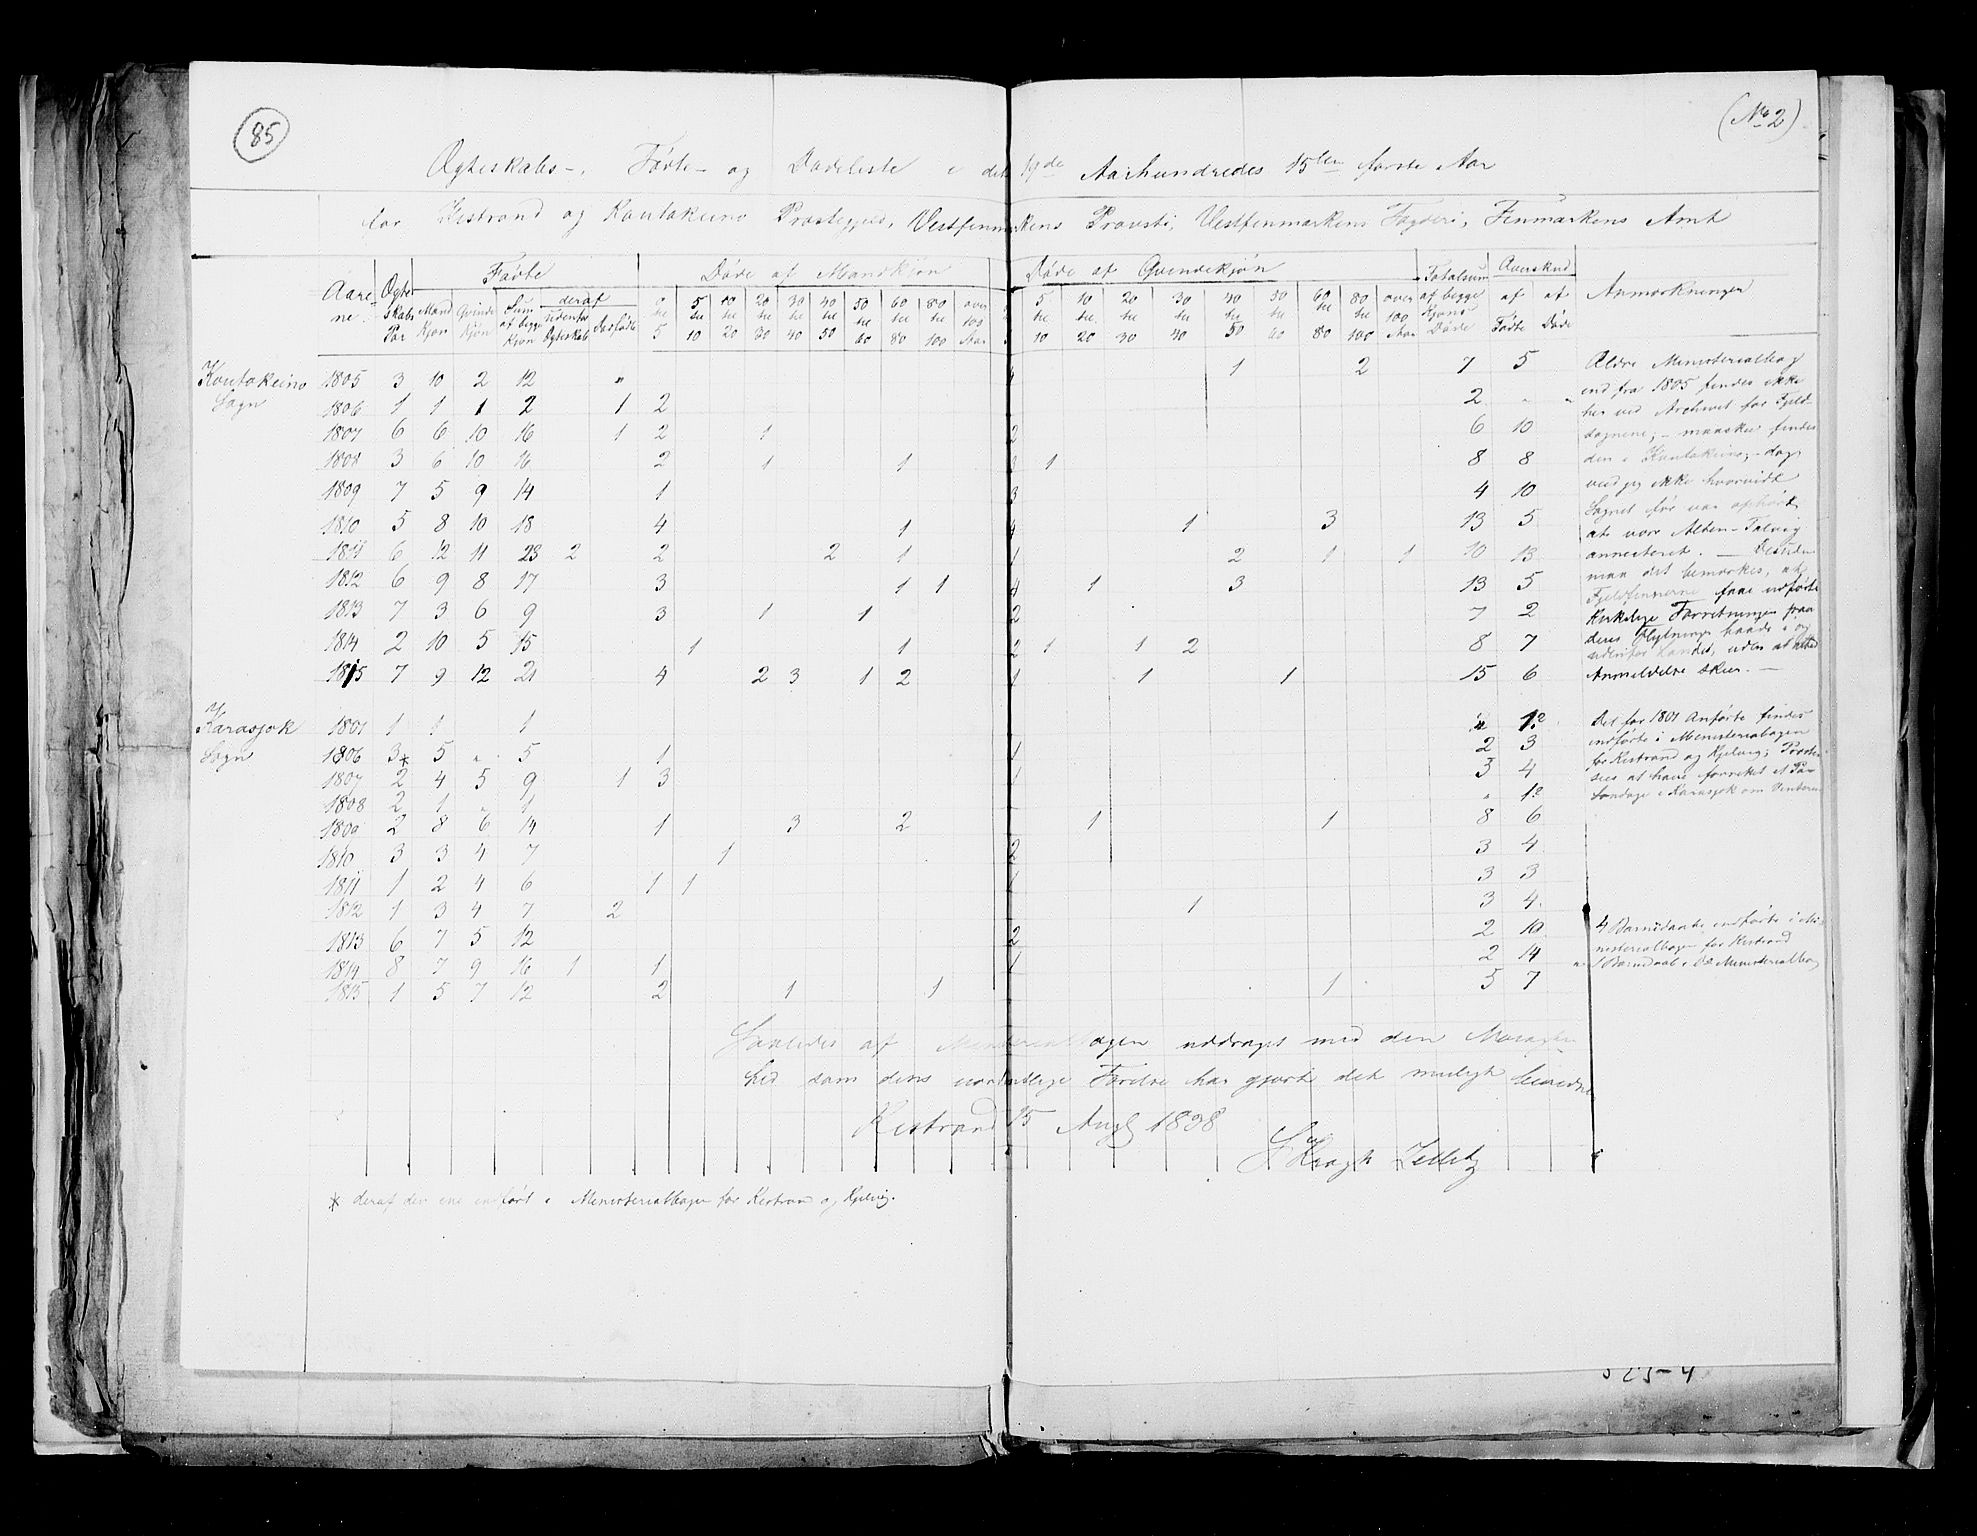 85
(No 2)
Ægteskabs-, Fødte- og Dødeliste i det 19de Aarhundredes 15ten første Aar
for Kistrand og Koutokeino Præstegjeld, Vestfinmarkens Provsti, Vestfinmarkens Fogderi, Finmarkens Amt
Aare- ne. Ægte- skabs Par Fødte Døde af Mandkjøn Døde af Qvindekjøn Totalsum af begge Kjøns Døde Overskud Anmærkninger
Mand Kjøn Qvinde Kjøn Sum af begge Kjøn deraf udenfor Ægteskab Dødfødte 0 til 5 5 til 10 10 til 20 20 til 30 30 til 40 40 til 50 50 til 60 60 til 80 80 til 100 over 100 Aar 5 til 10 10 til 20 20 til 30 30 til 40 40 til 50 50 til 60 60 til 80 80 til 100 over 100 Aar af Fødte af Døde
Koutokeino Sogn
1805 3 10 2 12 " 4 1 2 7 5
1806 1 1 1 2 1 2 2 " "
1807 6 6 10 16 1 2 1 2 6 10
1808 3 6 10 16 2 1 1 2 1 8 8
1809 7 5 9 14 1 3 4 10
1810 5 8 10 18 4 1 4 1 3 13 5
1811 6 12 11 23 2 2 2 1 1 2 1 1 10 13
1812 6 9 8 17 3 1 1 4 1 3 13 5
1813 7 3 6 9 3 1 1 2 7 2
1814 2 10 5 15 1 1 2 1 1 2 8 7
1815 7 9 12 21 4 2 3 1 2 1 1 1 15 6
Ældre Ministerialbog
end fra 1805 findes ikke
her ved Archivet for Fjeld-
sognene; - maaskee findes
den i Koutokeino; - dog
veed jeg ikke hvorvidt
Sognet før var ophørt
at være Alten-Talvig
annecteret. — Desuden
maa det bemærkes, at
Fjeldfinnerne faae udførte
kirkelige Forretninger paa
deres Flytninger baade i og
udenfor Landet, uden at altid
Anmeldelse skeer. —
Karasjok Sogn
1801 1 1 1 " 1.
1806 3* 5 " 5 1 1 2 3
1807 2 4 5 9 1 3 1 5 4
1808 2 1 " 1 " 1
1809 2 8 6 14 1 3 2 1 1 8 6
1810 3 3 4 7 1 2 3 4
1811 1 2 4 6 1 1 1 3 3
1812 1 3 4 7 2 1 3 4.
1813 6 7 5 12 2 2 10
1814 8 7 9 16 1 1 1 2 14
1815 1 5 7 12 2 1 1 1 5 7
Det for 1801 Anførte findes
indførte i Ministerialbogen
for Kistrand og Kjelvig; Præsten
sees at have forrettet et Par
Søndage i Karasjok om Vinteren
4 Barnedaabe indførte i Mi-
nisterialbogen for Kistrand
1 Barnedaab i do Ministerialbog
Saaledes af Ministerialbogen uddraget med den Nøiagtig-
hed som dens uordentlige Førelse har gjort det muligt bevidnes
Kistrand 15 Augt 1838
Kragh
* deraf den ene indført i Ministerialbogen for Kistrand og Kjelvig.